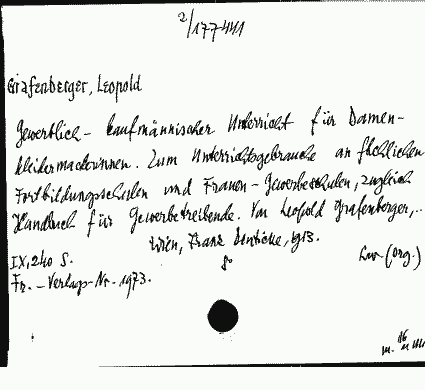 2/177441
Grafenberger, Leopold
Gewerblich-kaufmännischer Unterricht für Damen-
kleidermacherinnen. Zum Unterrichtsgebrauche an fachlichen
Fortbildungsschulen und Frauen-Gewerbeschulen, zugleich
Handbuch für Gewerbetreibende. Von Leopold Grafenberger,..
Wien, Franz Deuticke, 1913.
IX, 240 S. 8°
Fr.-Verlags-Nr. 1973.
(org.)